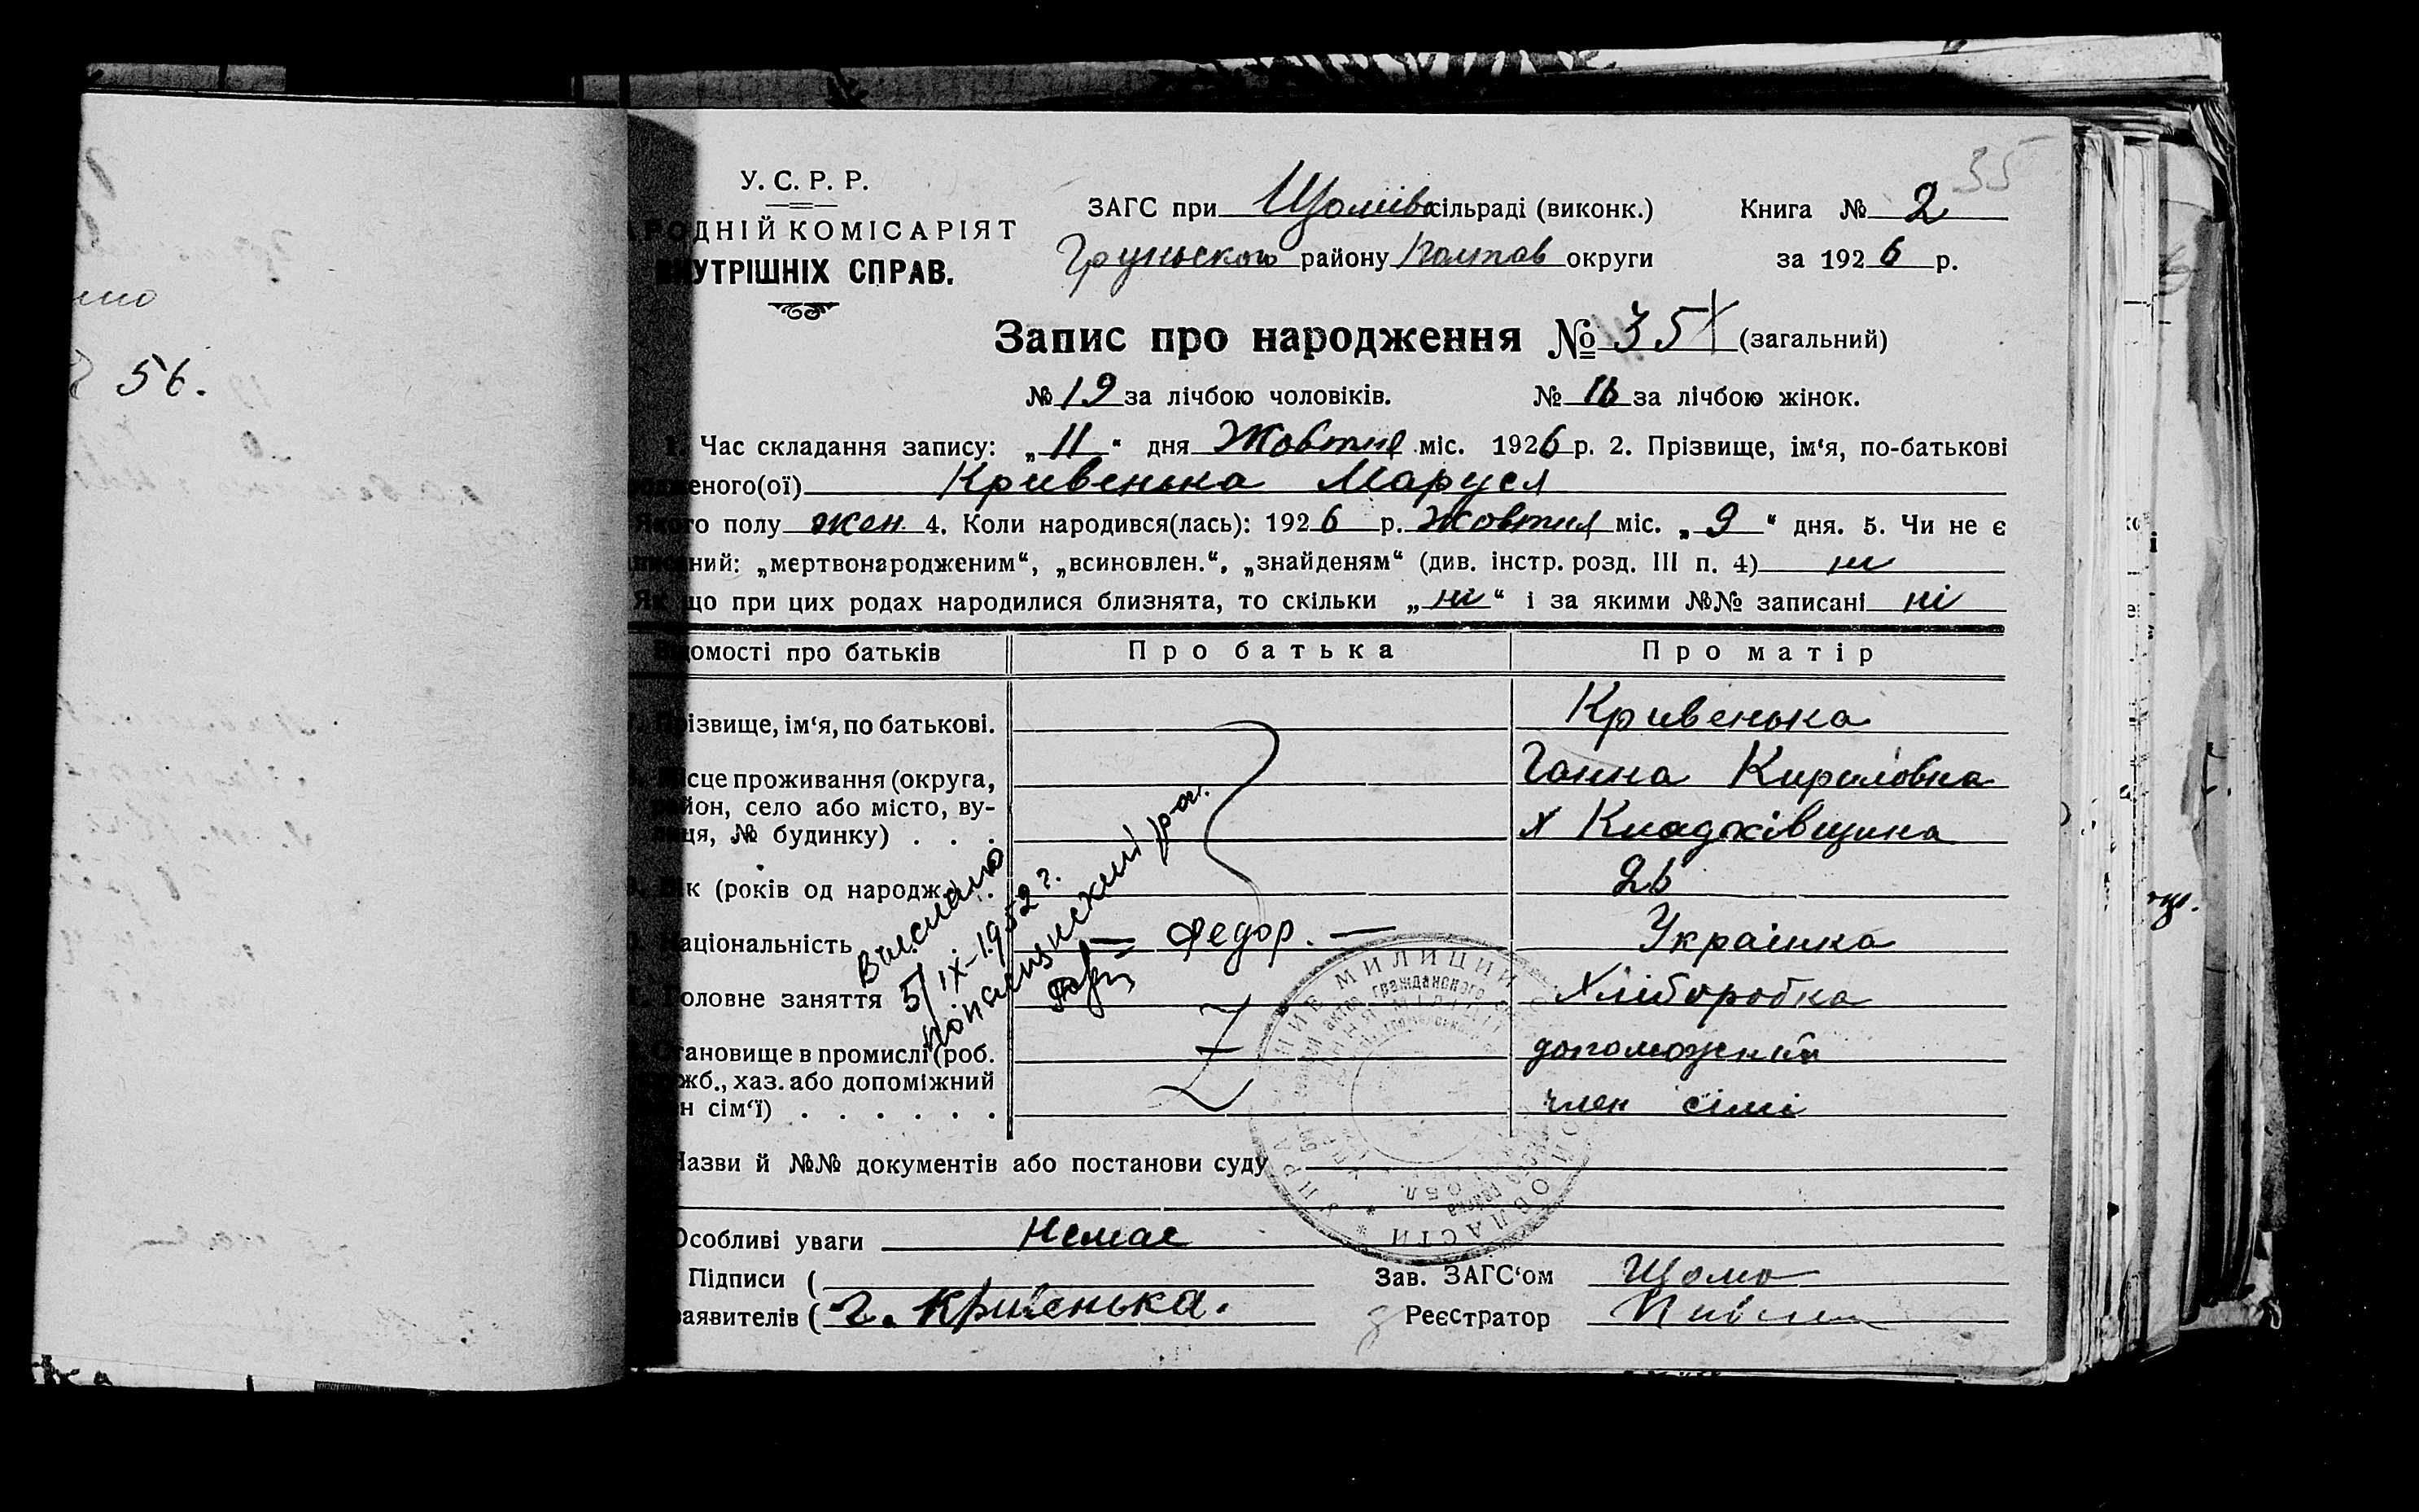 56.
35
У. С. Р. Р.
РОДНІЙ КОМІСАРІЯТ
ВНУТРІШНІХ СПРАВ.
ЗАГС при сільраді (виконк.) Книга № 2
Груньского району Полтав округи за 1926 р.
Запис про народження № 35 (загальний)
№ 19 за лічбою чоловіків. № 16 за лічбою жінок.
1. Час складання запису: „11“ дня Жовтня міс. 1926 р. 2. Прізвище, ім‘я, по-батькові
еного(ої) Кривенька Маруся
Якого полу жен. 4. Коли народився(лась): 1926 р. Жовтня міс. „9“ дня. 5. Чи не є
ний: „мертвонародженим“, „всиновлен.“, „знайденям“ (див. інстр. розд. III п. 4) ні
Якщо при цих родах народилися близнята, то скільки „ні“ і за якими №№ записані ні
Відомості про батьків Про батька Про матір
Прізвище, ім‘я, по батькові. Кривенька
Місце проживання (округа, Ганна Кириловна
район, село або місто, ву-
лиця, № будинку) . . . х
Вік (років од народж. 26
Національність — Федор. — Украінка
Головне заняття Хліборобка
Становище в промислі (роб. допоможний
жб., хаз. або допоміжний
н сім‘ї) . . . . . . член сімі
Выслано
5/IX-1952 г.
Назви й №№ документів або постанови суду
Особливі уваги Немає
Підписи ( Зав. ЗАГС‘ом
заявителів ( Г. Кривенька. Реєстратор